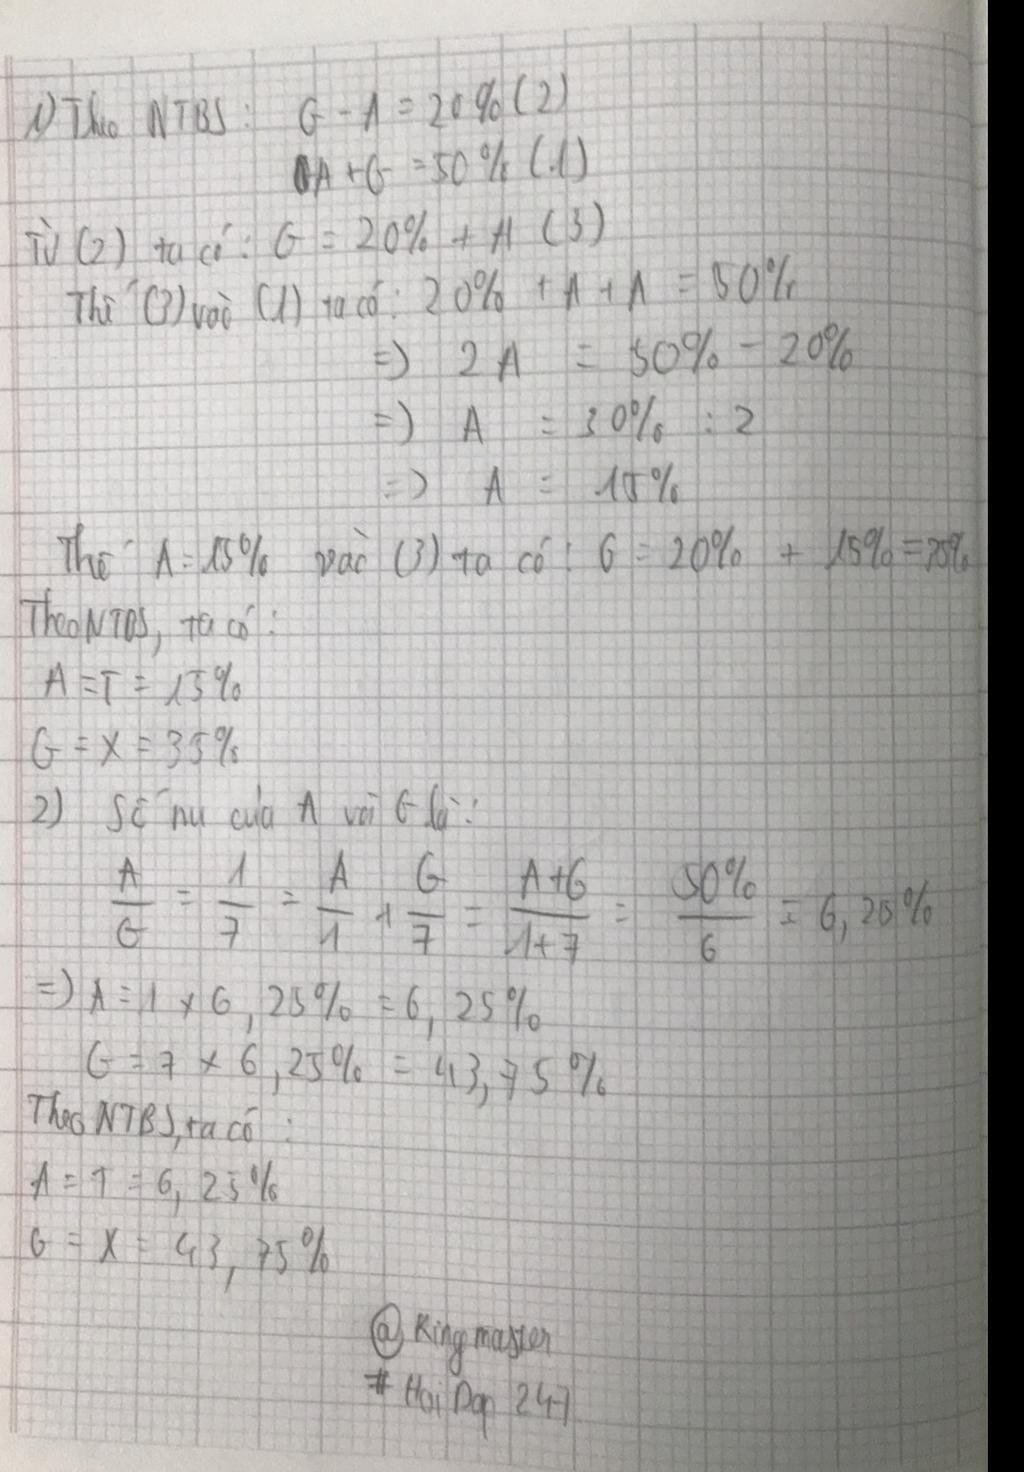 1) Theo NTBS: G - A = 20% (2)
A + G = 50% (1)
Từ (2) ta có: G = 20% + A (3)
Thế (3) vào (1) ta có: 20% + A + A = 50%
=) 2A = 50% - 20%
=) A = 30% : 2
=) A = 15%
Thế A = 15% vào (3) ta có: G = 20% + 15% = 35%
Theo NTBS, ta có:
A = T = 15%
G = X = 35%
2) Số nu của A với G là:
A/G = 1/7 = A/1 + G/7 = A+G/1+7 = 50%/6 = 6,25%
=) A = 1 x 6,25% = 6,25%
G = 7 x 6,25% = 43,75%
Theo NTBS, ta có:
A = T = 6,25%
G = X = 43,75%
@ Kingmaster
# Hoi Dap 247